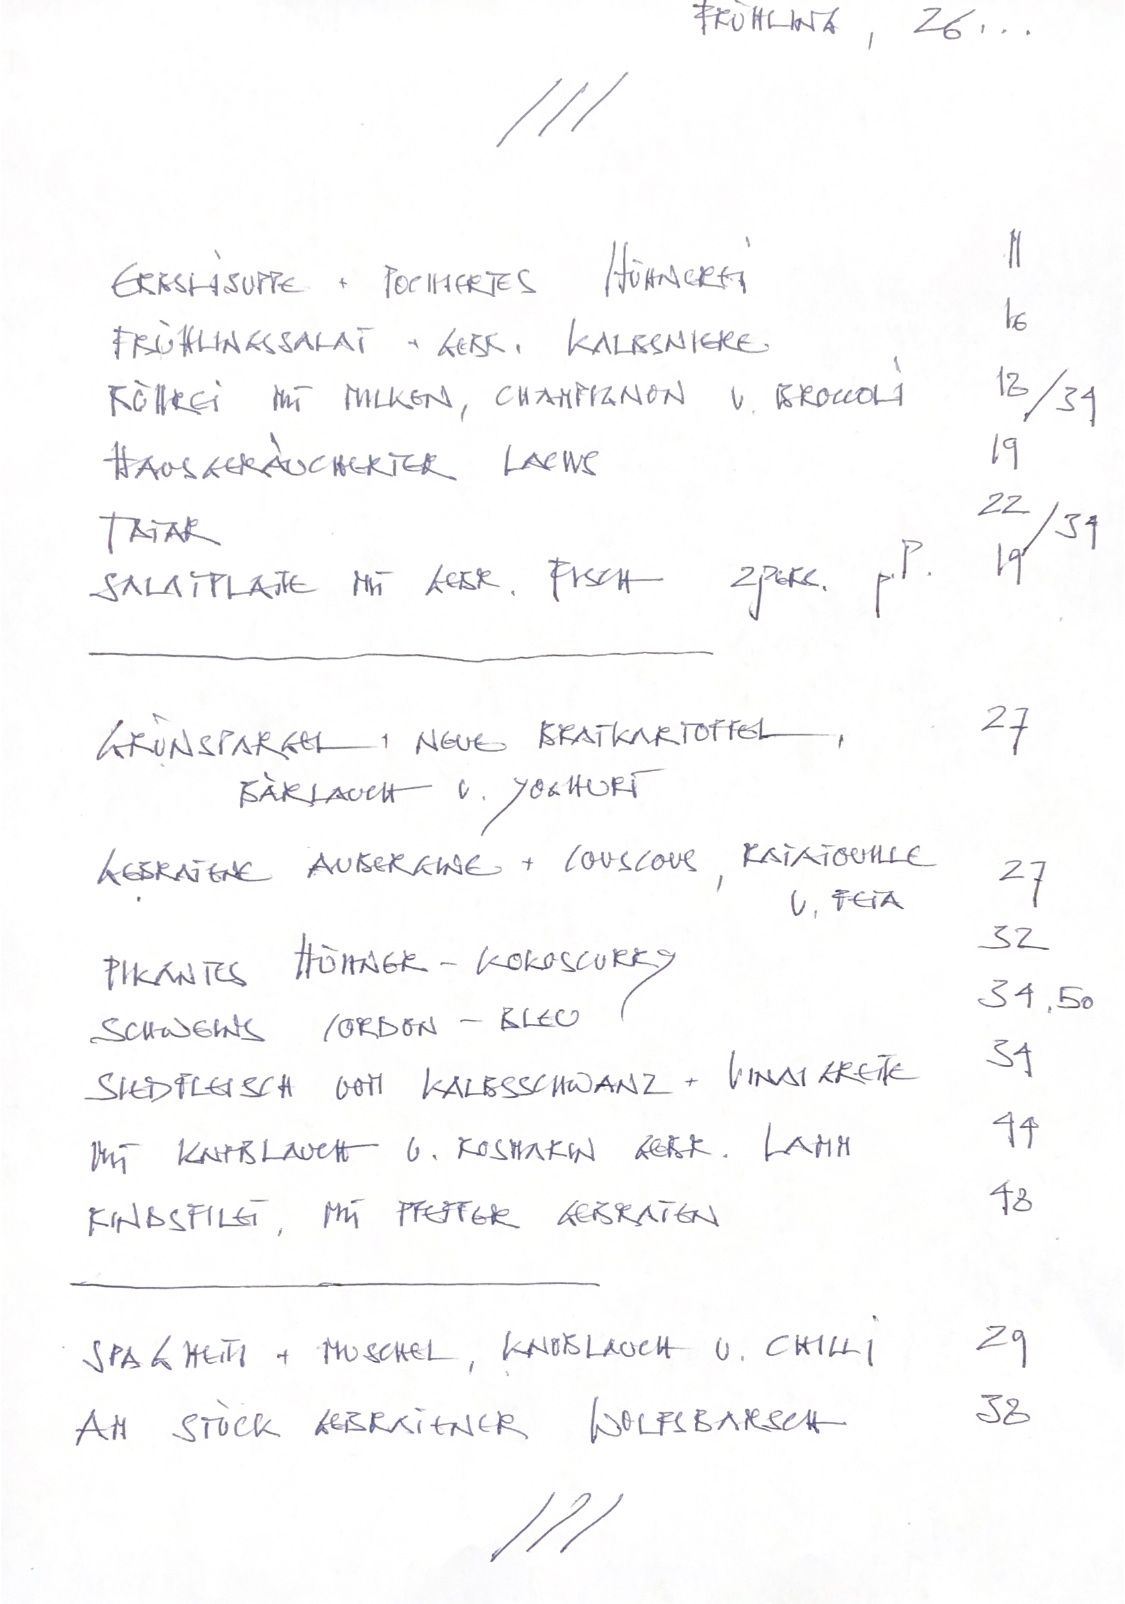 FRÜHLING, 26...
///
ERBSLISUPPE + POCHIERTES HÜHNEREI 11
FRÜHLINGSSALAT + GEBR. KALBSNIERE 16
MIT MILKEN, CHAMPIGNON U. BROCCOLI 18/34
HAUSGERÄUCHERTER LACHS 19
TATAR 22/34
SALATPLATTE MIT GEBR. FISCH 2 PERS. p.P. 19
GRÜNSPARGEL + NEUE BRATKARTOFFEL, 27
BÄRLAUCH U. YOGHURT
GEBRATENE AUBERGINE + COUSCOUS, RATATOUILLE 27
U. FETA
PIKANTES HÜHNER - KOKOSCURRY 32
SCHWEINS CORDON - BLEU 34.50
SIEDFLEISCH VOM KALBSSCHWANZ + VINAIGRETTE 34
MIT KNOBLAUCH U. ROSMARIN GEBR. LAMM 44
RINDSFILET, MIT PFEFFER GEBRATEN 48
SPAGHETTI + MUSCHEL, KNOBLAUCH U. CHILLI 29
AM STÜCK GEBRATENER WOLFSBARSCH 38
///